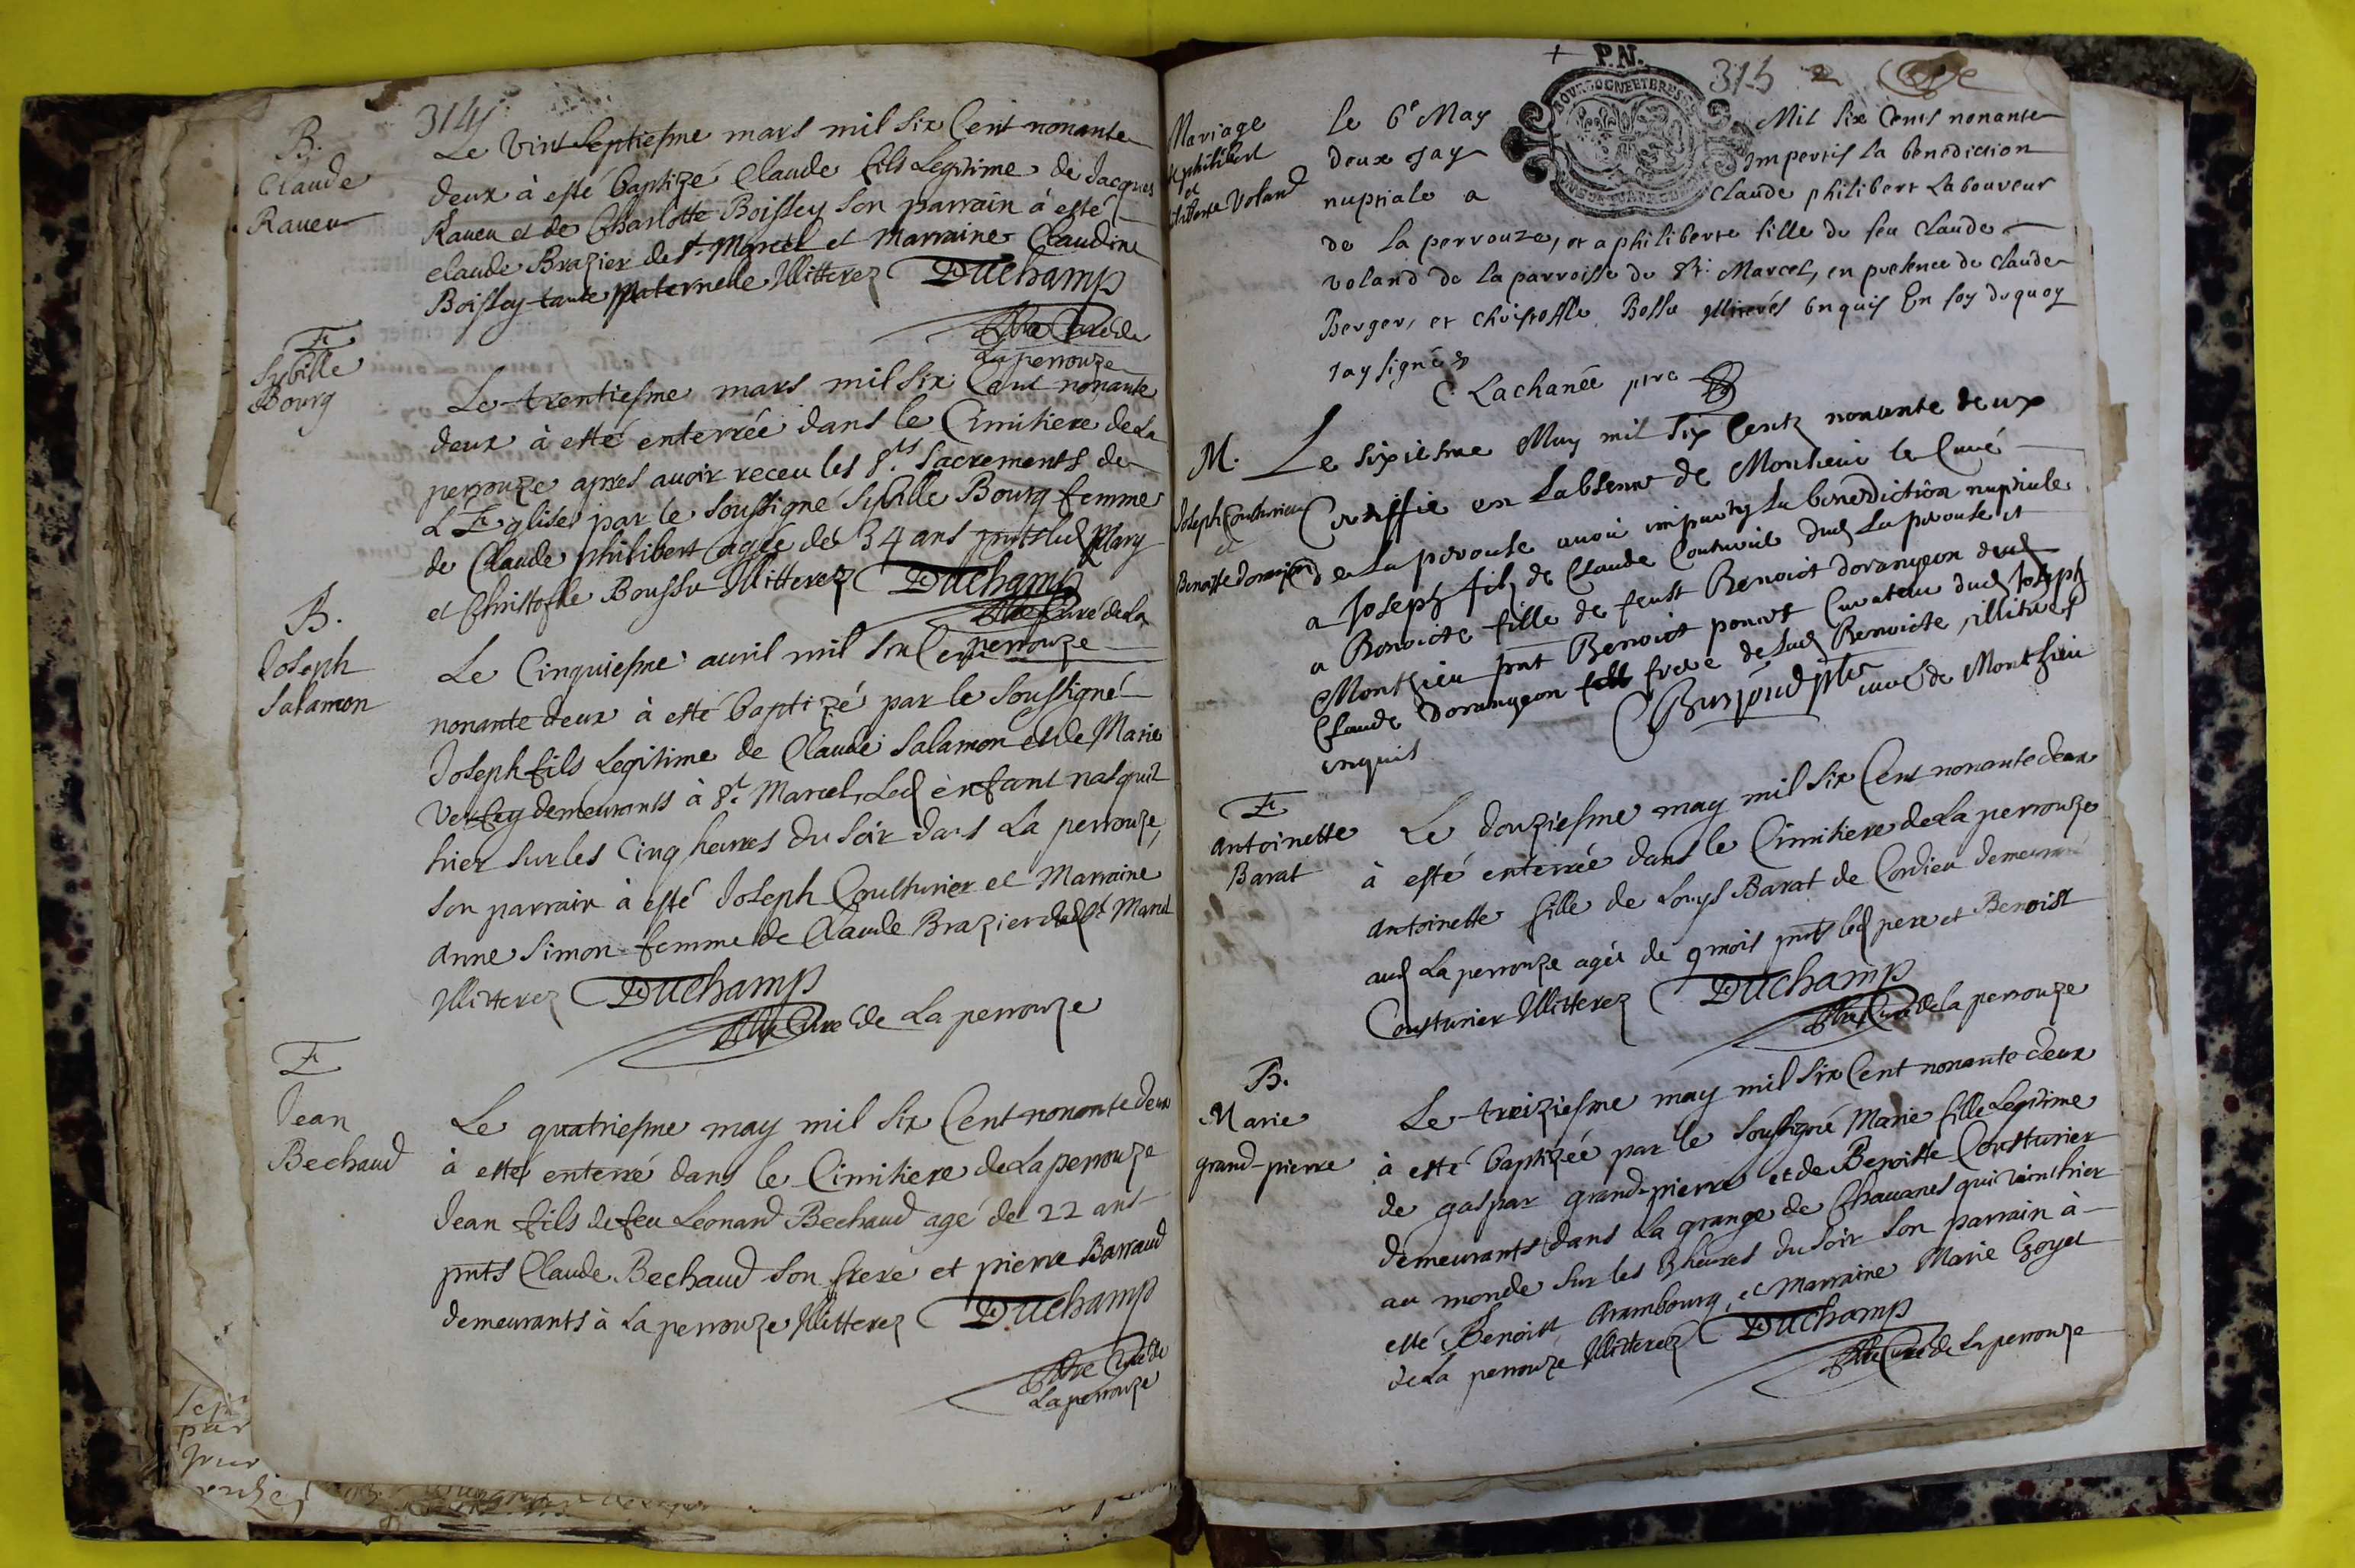 314
B.
Claude
Raueu
Le vint septiesme mars mil six Cent nonante
deux à esté baptizé Claude fils Legitime de Jacques
Raueu et de Charlotte Boissey son parrain à esté
claude Brazier de st. Marcel et Marraine Claudine
Boissey tante maternelle Illitterez Duchamp
ptre Curé de
La perrouze
E
Sybille
Bourg
Le trentiesme mars mil six Cent nonante
deux à esté enterrée dans le Cimitiere de La
perrouze apres auoir receu les sts Sacrements de
L'Eglise par le soussigné Sybille Bourg femme
de Claude philibert agée de 34 ans pnts led Mary
et Christofle Boussu Illitterez Duchamp
ptre Curé de La
perrouze
B.
Joseph
Salamon
Le Cinquiesme auril mil six Cent
nonante deux à esté baptizé par le soussigné
Joseph fils Legitime de Claude Salamon et de Marie
Verfey demeurants à st. Marcel, Led enfant nasquit
hier sur les Cinq heures du soir dans La perrouze,
son parrain à esté Joseph Coulturier et Marraine
Anne Simon femme de Claude Brazier dud st Marcel
Illitterez Duchamp
ptre Cure de La perrouze
E
Jean
Bechaud
Le quatriesme may mil six Cent nonante deux
à esté enterré dans le Cimitiere de La perrouze
Jean fils de feu Leonard Bechaud agé de 22 ans
pnts Claude Bechaud son frere et pierre Barraud
demeurants à La perrouze Illitterez Duchamp
ptre Curé de
La perrouze
P.N.
315
2
Mariage
philibert
et
philiberte Voland
Le 6e May Mil six Cents nonante
deux Jay Impertis La benediction
nuptiale a Claude philibert Laboureur
de La perrouze, et a philiberte fille de feu Claude
Voland de La parroisse de St. Marcel, en presence de Claude
Berger, et Christoffle Bessu illiterés enquis En foy dequoy
Jay signé
C Lachanée ptre
M.
Joseph Coulturier
et
Benoiste dorangeon
Le sixiesme May mil six Centz nonante deux
Certiffie en Labsence de Monsieur le Curé
de La perouse auoir imparty La benediction nuptiale
a Joseph filz de Claude Couturie dud La perouse et
a Benoicte fille de feust Benoict dorangeon dud
Monthieu pnt Benoict poncet Curateur dud Joseph
Claude Dorangeon frere de Lad Benoicte, illitires
enquis
Burjoud ptre curé de Monthieu
E
Antoinette
Barat
Le douziesme may mil six Cent nonante deux
à esté enterrée dans le Cimitiere de La perrouze
Antoinette fille de Louys Barat de Cordieu demeurant
aud La perrouze agée de 9 mois pnts led pere et Benoist
Cousturier Illitterez Duchamp
ptre Curé de la perrouze
B.
Marie
grand-pierre
Le treiziesme may mil six Cent nonante deux
à esté baptizée par le soussigné Marie fille Legitime
de gaspar grand-pierre et de Benoitte Cousturier
demeurants dans La grange de Chauanes qui vint hier
au monde sur les 3 heures du soir son parrain à
esté Benoist Arambourg, et Marraine Marie Goyet
de La perrouze Illitterez Duchamp
ptre Curé de La perrouze